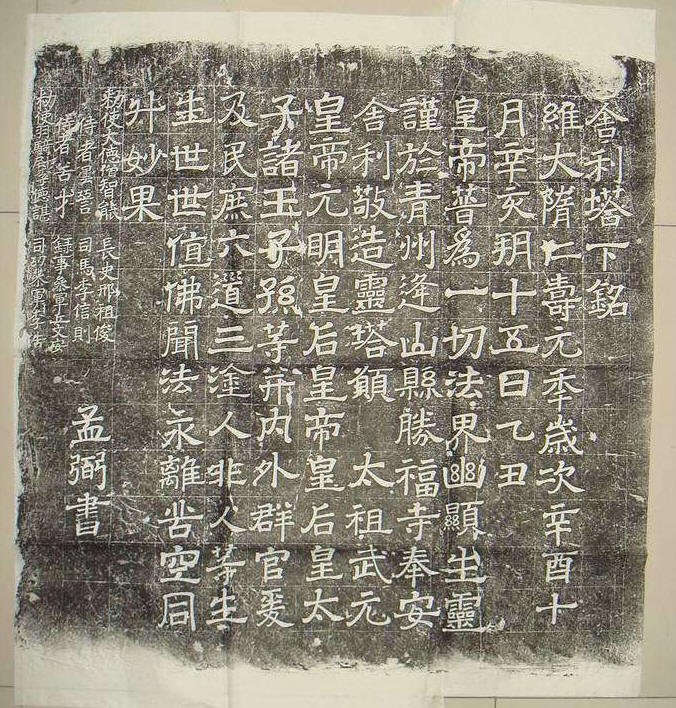 舍利塔下銘
維大隋仁壽元年歲次辛酉十
月辛亥朔十五日乙丑
皇帝普為一切法界幽顯生靈
謹於青州逢山縣勝福寺奉安
舍利敬造靈塔願 太祖武元
皇帝元明皇后皇帝皇后皇太
子諸王子孫等并內外群官爰
及民庶六道三塗人非人等生
生世世值佛聞法永離苦空同
升妙果
敕使大德僧智能 長史邢祖俊
侍者曇誓 司馬李信則
侍者善才 錄事參軍丘文安
敕使羽騎尉李德諶 司功參軍李佸
孟弼書